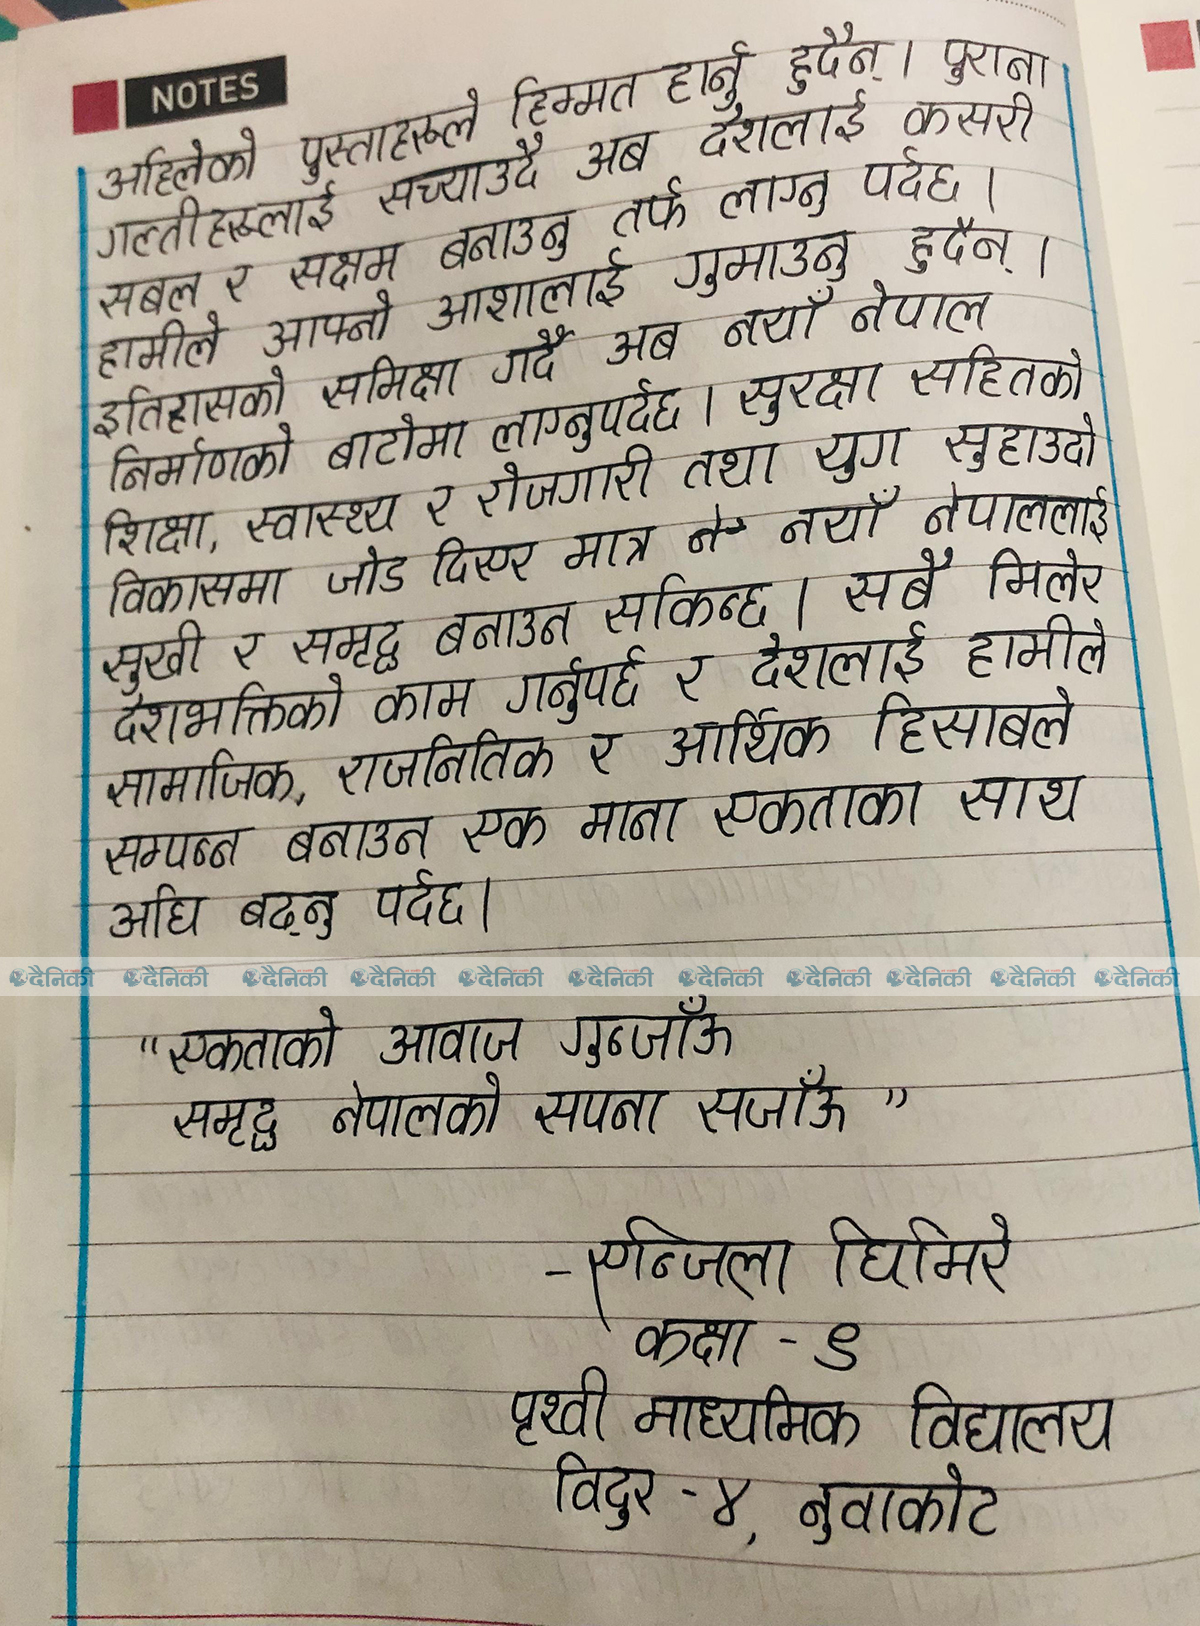 NOTES
अहिलेको पुस्ताहरूले हिम्मत हार्नु हुदैन्। पुराना
गल्तीहरूलाई सच्याउदै अब देशलाई कसरी
सबल र सक्षम बनाउनु तर्फ लाग्नु पर्दछ।
हामीले आफ्नो आशालाई गुमाउनु हुदैन्।
इतिहासको समिक्षा गर्दै अब नयाँ नेपाल
निर्माणको बाटोमा लाग्नुपर्दछ। सुरक्षा सहितको
शिक्षा, स्वास्थ्य र रोजगारी तथा युग सुहाउदो
विकासमा जोड दिएर मात्र नै नयाँ नेपाललाई
सुखी र समृद्ध बनाउन सकिन्छ। सबै मिलेर
देशभक्तिको काम गर्नुपर्छ र देशलाई हामीले
सामाजिक, राजनितिक र आर्थिक हिसाबले
सम्पन्न बनाउन एक माना एकताका साथ
अघि बढ्नु पर्दछ।
दैनिकी दैनिकी दैनिकी दैनिकी दैनिकी दैनिकी दैनिकी दैनिकी दैनिकी दैनिकी दैनिकी
"एकताको आवाज गुन्जाँऊ
समृद्ध नेपालको सपना सजाँऊ"
- एन्जिला घिमिरे
कक्षा - ९
पृथ्वी माध्यमिक विद्यालय
विदुर - ४, नुवाकोट